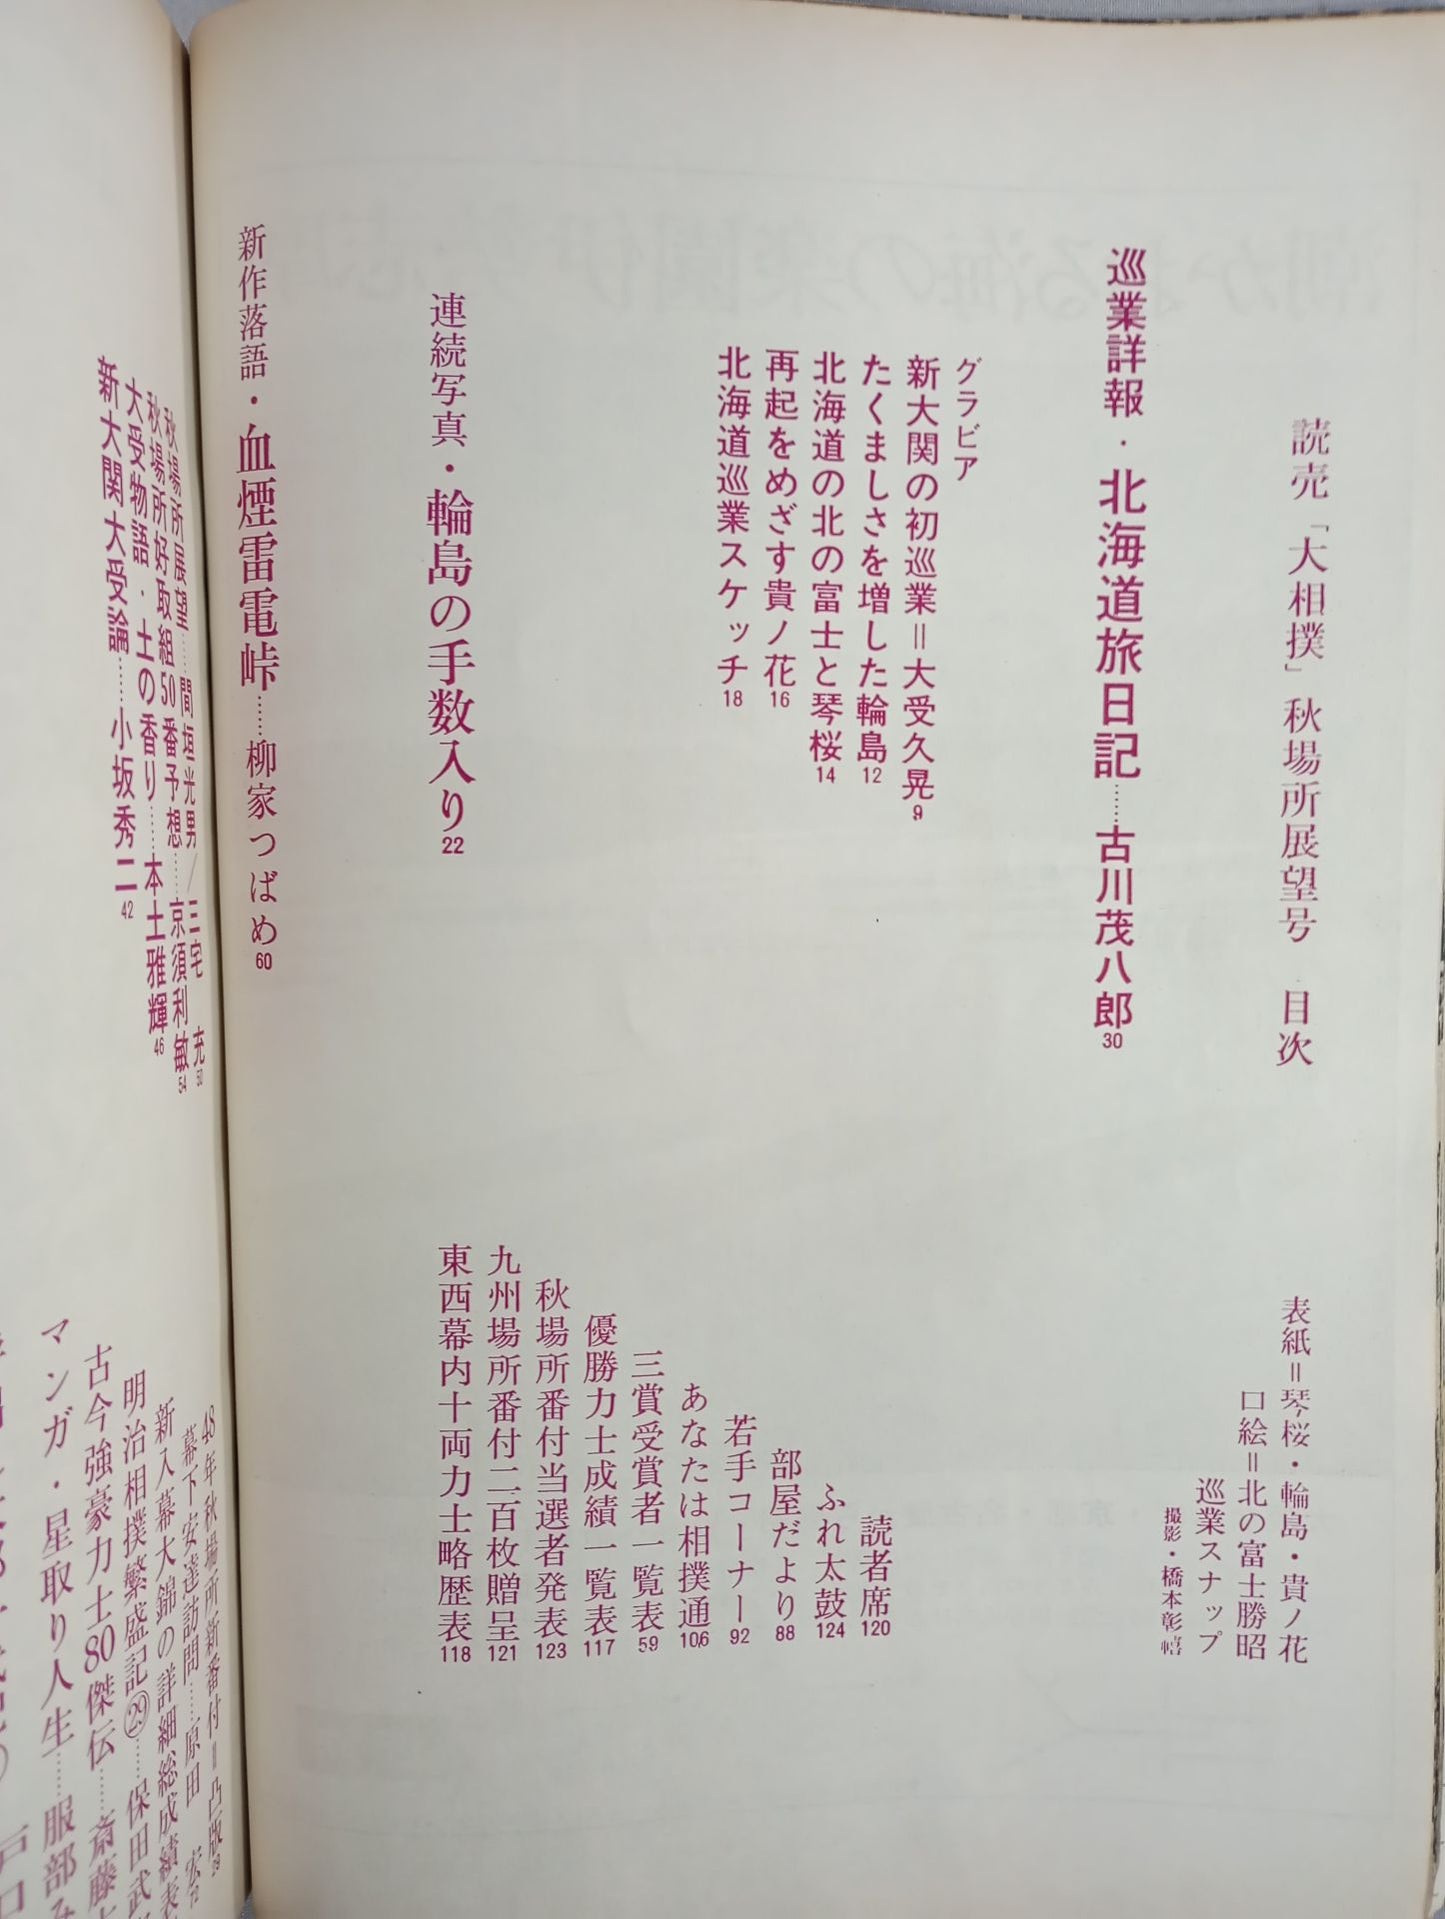 読売「大相撲」秋場所展望号 目次
表紙＝琴桜・輪島・貴ノ花
口絵＝北の富士勝昭
巡業スナップ
撮影・橋本彰
巡業詳報・北海道旅日記……古川茂八郎30
グラビア
新大関の初巡業＝大受久晃9
たくましさを増した輪島12
北海道の北の富士と琴桜14
再起をめざす貴ノ花16
北海道巡業スケッチ18
読者席120
ふれ太鼓124
部屋だより88
若手コーナー92
あなたは相撲通106
三賞受賞者一覧表59
優勝力士成績一覧表117
秋場所番付当選者発表123
九州場所番付二百枚贈呈121
東西幕内十両力士略歴表118
連続写真・輪島の手数入り22
新作落語・血煙雷電峠……柳家つばめ60
秋場所展望……間垣光男／三宅 充50
秋場所好取組50番予想……京須利敏54
大受物語・土の香り……本土雅輝46
新大関大受論……小坂秀二42
48年秋場所新番付＝凸版29
幕下安達訪問……原田 宏72
新入幕大錦の詳細総成績表
明治相撲繁盛記㉙……保田武
古今強豪力士80傑伝……斎藤
マンガ・星取り人生……服部み
戸口